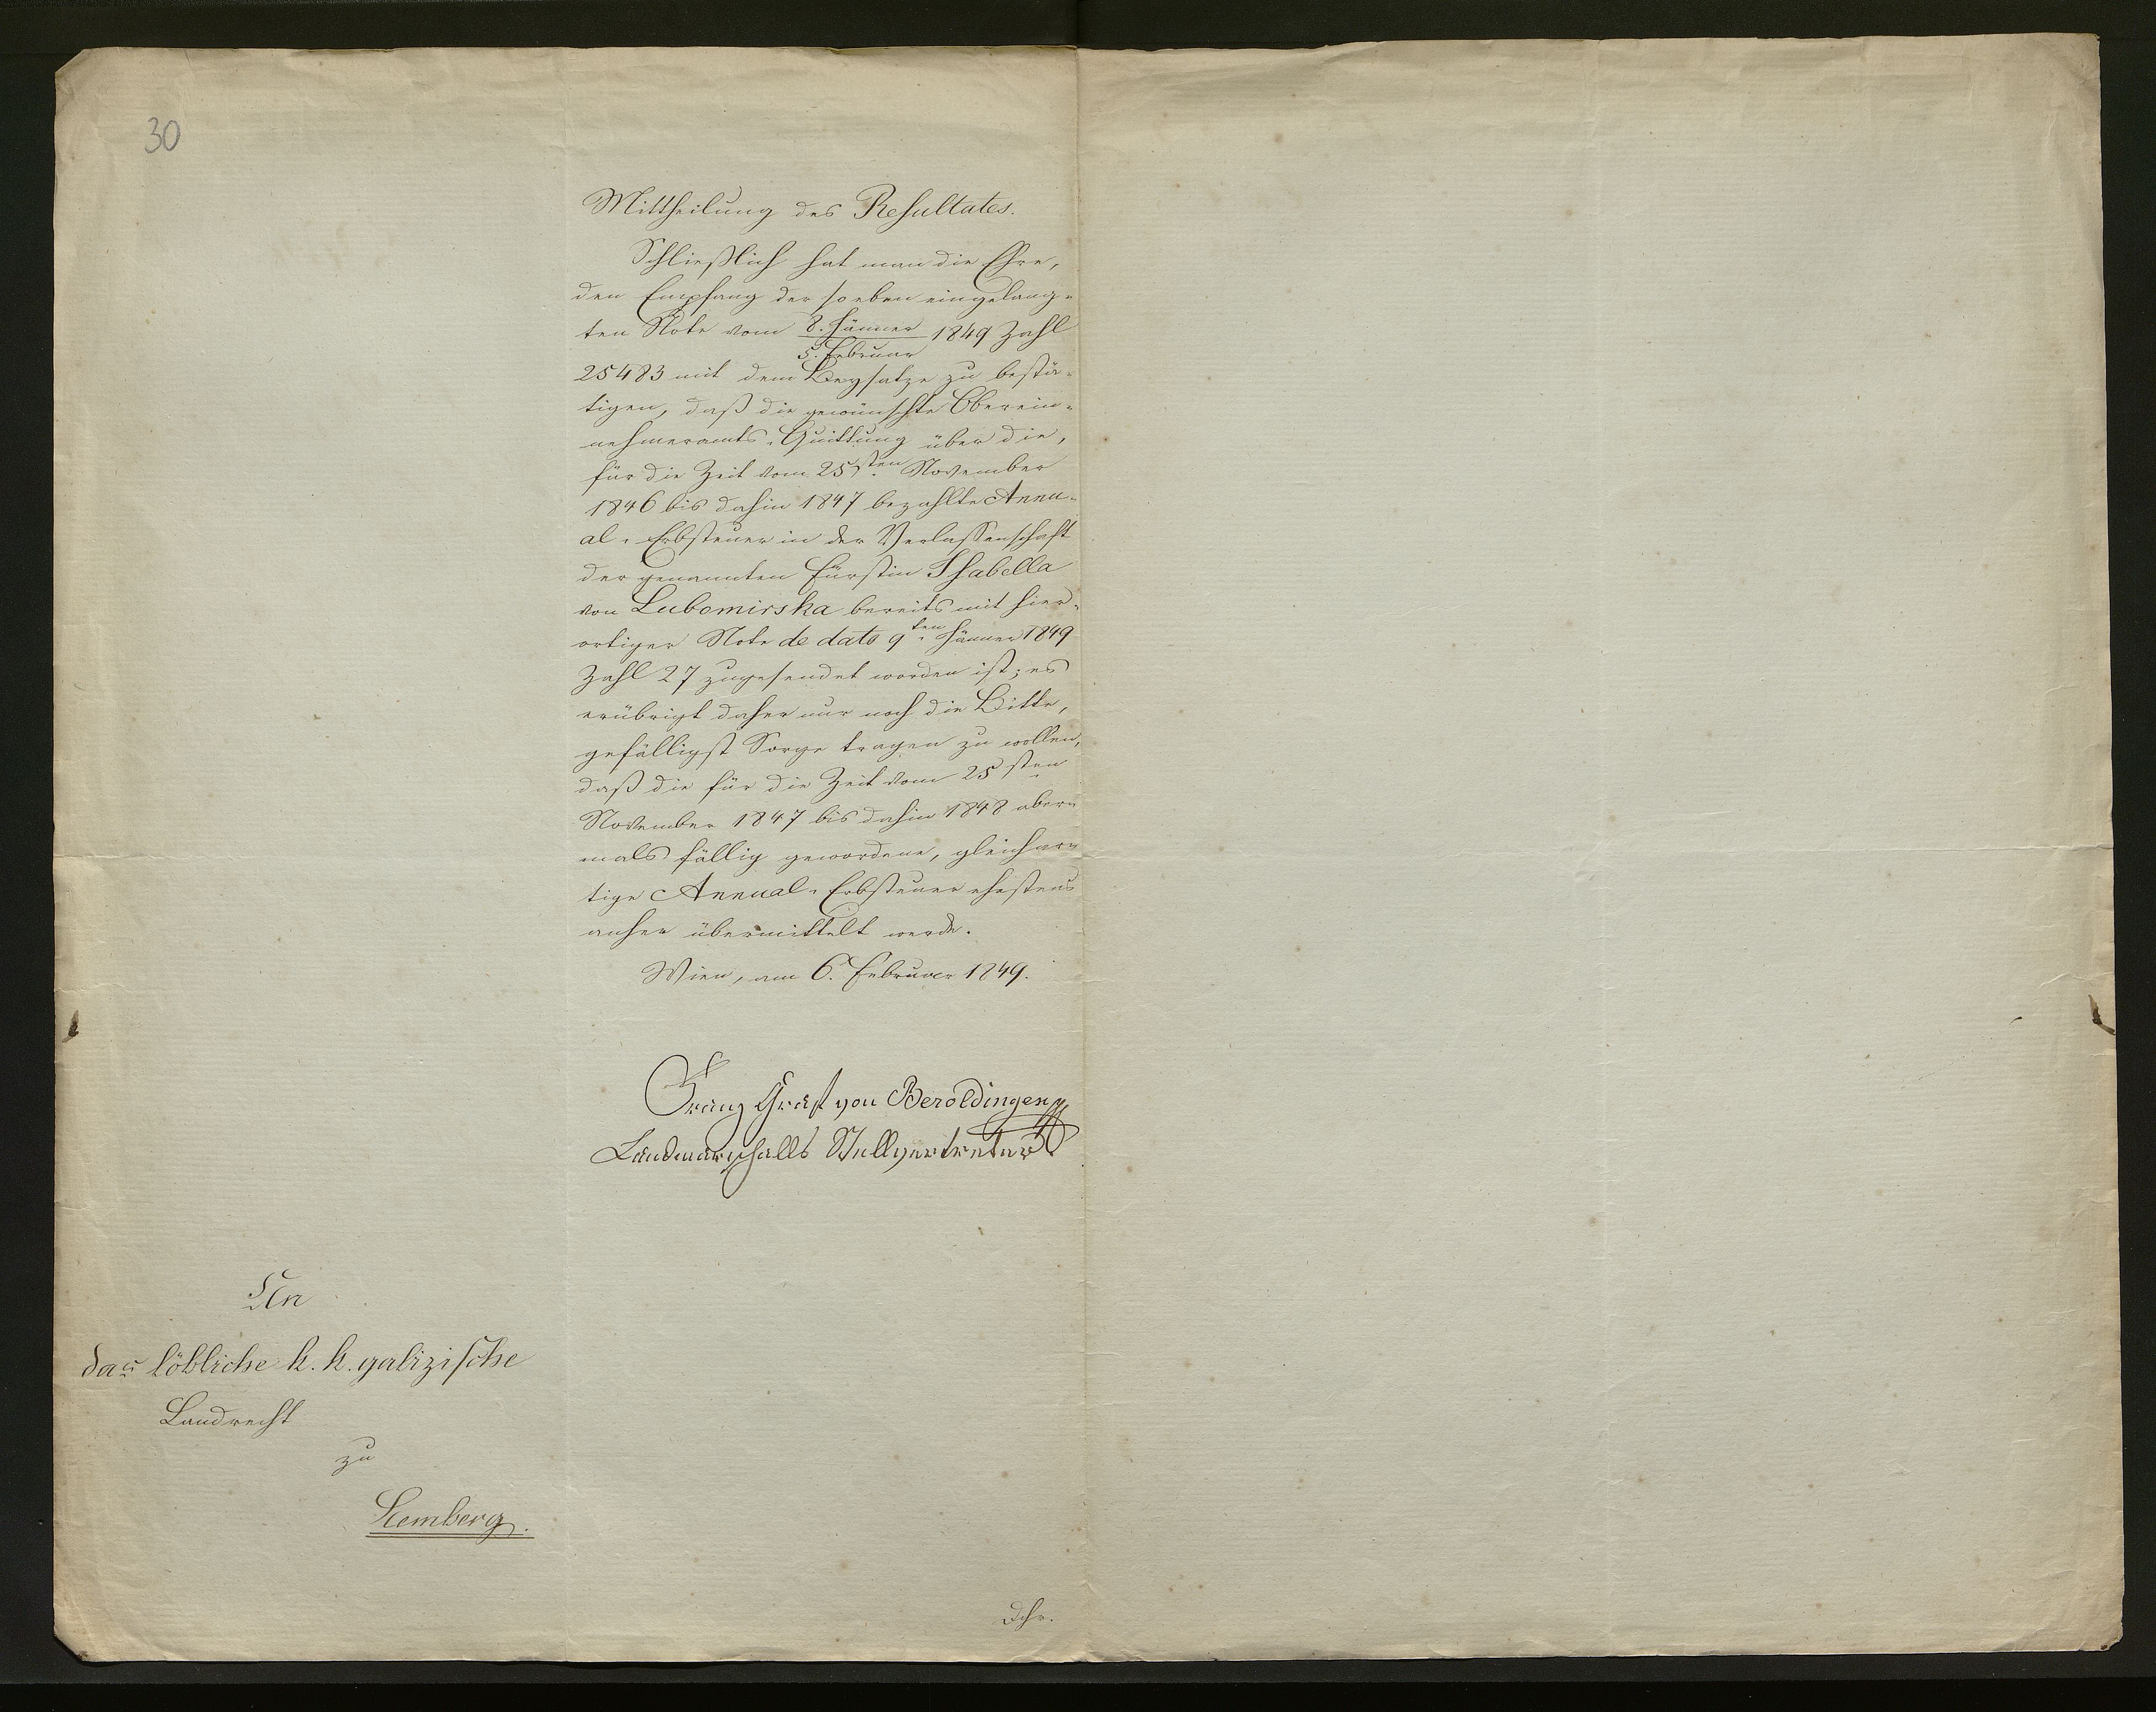 30
Mittheilung des Resultates.
Schließlich hat man die Ehre,
den Empfang der soeben eingelang-
ten Note vom 8. Jänner 1849 Zahl
5. Februar
25483 mit dem Beysatze zu bestä-
tigen, daß die gewünschte Oberein-
nehmeramts-Quittung über die,
für die Zeit vom 25sten November
1846 bis dahin 1847 bezahlte Annu-
al-Erbsteuer in der Verlassenschaft
der genannten Fürstin Isabella
von Lubomirska bereits mit hier-
ortiger Note de dato 9ten Jänner 1849
Zahl 27 zugesendet worden ist; es
erübrigt daher nur noch die Bitte,
gefälligst Sorge tragen zu wollen,
daß die für die Zeit vom 25sten
November 1847 bis dahin 1848 aber-
mals fällig gewordene, gleichar-
tige Annual-Erbsteuer ehestens
anher übermittelt werde.
Wien, am 6. Februar 1849.
Franz Graf von Beroldingen
Landmarschalls Stellvertreter
An
das löbliche k. k. galizische
Landrecht
zu
Lemberg.